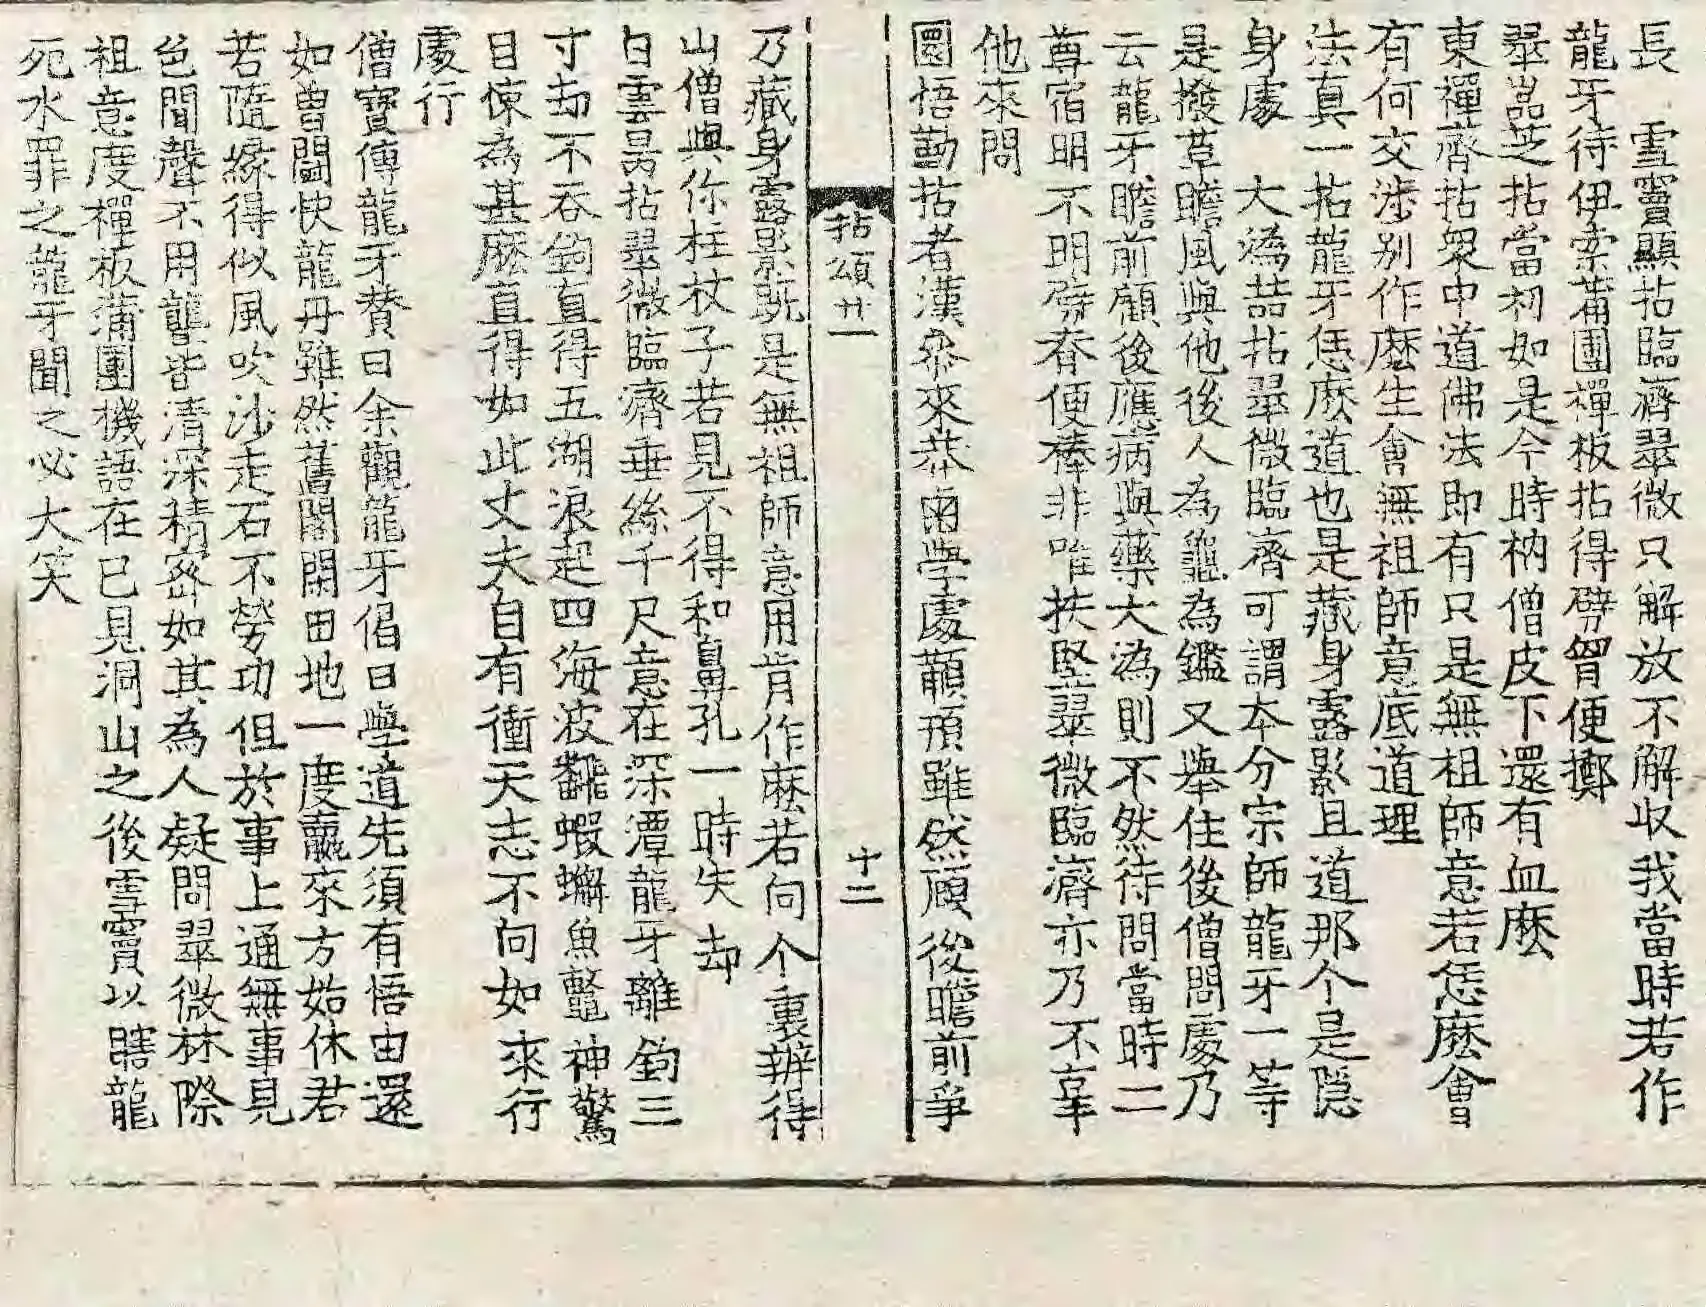 長　雪竇顯拈臨濟翠微只解放不解收我當時若作
龍牙待伊索蒲團禪板拈得劈胷便擲
翠嵓芝拈當初如是今時衲僧皮下還有血麽
東禪齊拈衆中道佛法即有只是無祖師意若恁麽會
有何交涉别作麽生會無祖師意底道理
法真一拈龍牙恁麽道也是藏身露影且道那个是隱
身處　大潙喆拈翠微臨濟可謂本分宗師龍牙一等
是撥草瞻風與他後人為龜為鑑又舉住後僧問處乃
云龍牙瞻前顧後應病與藥大潙則不然待問當時二
尊宿明不明劈脊便棒非唯扶竪翠微臨濟亦乃不辜
他來問
圜悟勤拈者漢叅來莽鹵學處顢頇雖然顧後瞻前爭
拈頌卄一
十二
乃藏身露影既是無祖師意用肯作麽若向个裏辨得
山僧與你柱杖子若見不得和鼻孔一時失却
白雲昺拈翠微臨濟垂絲千尺意在深潭龍牙離鉤三
寸刼不吞鉤直得五湖浪起四海波飜蝦蠏魚鼈神驚
目悚為甚麽直得如此丈夫自有衝天志不向如來行
處行
僧寶傳龍牙賛曰余觀龍牙偈曰學道先須有悟由還
如曾鬪快龍舟雖然舊閣閑田地一度贏來方始休君
若隨緣得似風吹沙走石不勞功但於事上通無事見
色聞聲不用聾皆清深精密如其為人疑問翠微林際
祖意度禪板蒲團機語在已見洞山之後雪竇以瞎龍
死水罪之龍牙聞之必大笑